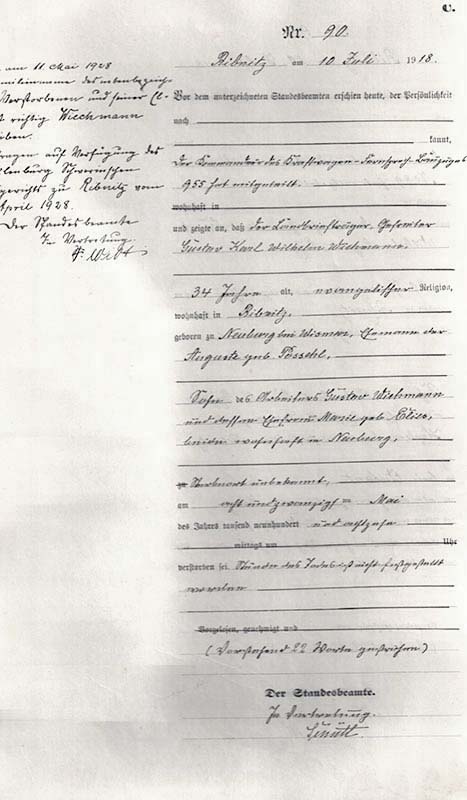 C.
Nr. 90.
Ribnitz am 10 Juli 1918.
Vor dem unterzeichneten Standesbeamten erschien heute, der Persönlichkeit
nach
kannt,
Der Kommandeur des Kraftwagen-Fernsprech-Bauzuges
955 hat mitgeteilt.
wohnhaft in
und zeigte an, daß der Landbriefträger, Gefreiter
Gustav Karl Wilhelm Wichmann.
34 Jahre alt, evangelischer Religion,
wohnhaft in Ribnitz,
geboren zu Neuburg bei Wismar, Ehemann der
Auguste geb. Possehl,
Sohn des Arbeiters Gustav Wichmann
und dessen Ehefrau Marie geb.
beide wohnhaft in Neuburg,
Sterbeort unbekannt,
am acht und zwanzigsten Mai
des Jahres tausend neunhundert und achtzehn
mittags um Uhr
verstorben sei. Stunde des Todes ist nicht festgestellt
worden
Vorgelesen, genehmigt und
(Vorstehend 22 Worte gestrichen)
Der Standesbeamte.
In Vertretung.
am 11 Mai 1928
milienname des nebenbezeich
Verstorbenen und seiner El-
t richtig Wiechmann
iben.
tragen auf Verfügung des
lenburg Schwerinschen
gerichts zu Ribnitz vom
April 1928.
Der Standesbeamte
In Vertretung.